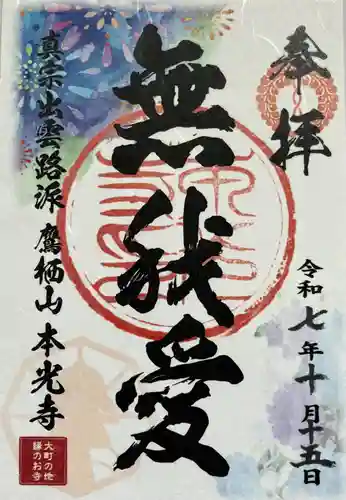 奉拝
令和七年十月十五日
無我愛
真宗出雲路派 鷹栖山 本光寺
大町の地
鎌のお寺